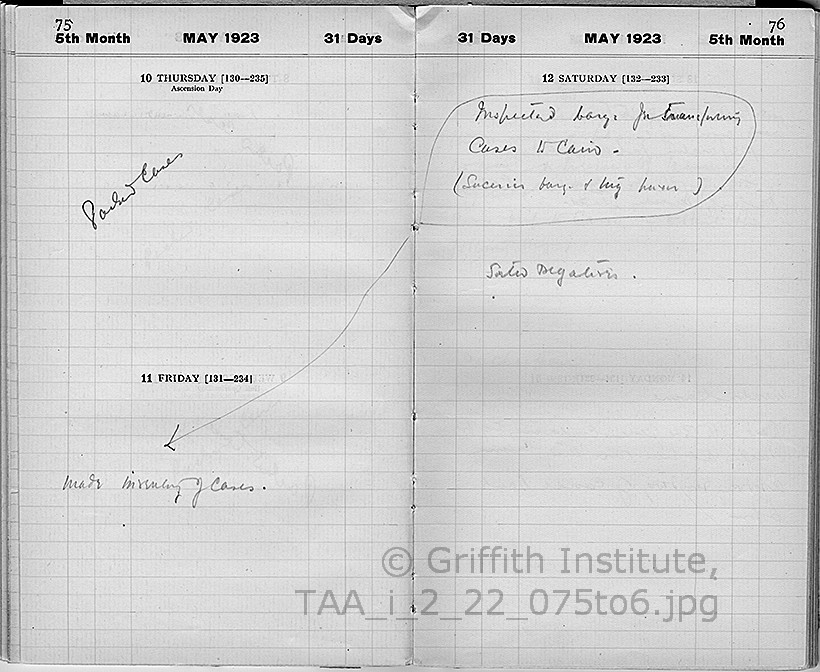 75
5th Month MAY 1923 31 Days
10 THURSDAY [130—235]
Ascension Day
Packed Cases
11 FRIDAY [131—234]
Made inventory of Cases.
76
31 Days MAY 1923 5th Month
12 SATURDAY [132—233]
Inspected barge for transferring
Cases to Cairo -
( barge & )
Sorted Negatives.
© Griffith Institute,
TAA_i_2_22_075to6.jpg